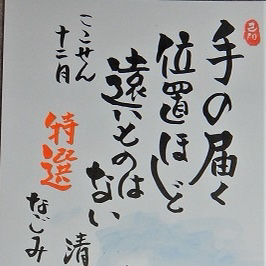 手の届く
位置ほど
遠いものは
ない
清
ここせん
十二月
特選
なごみ